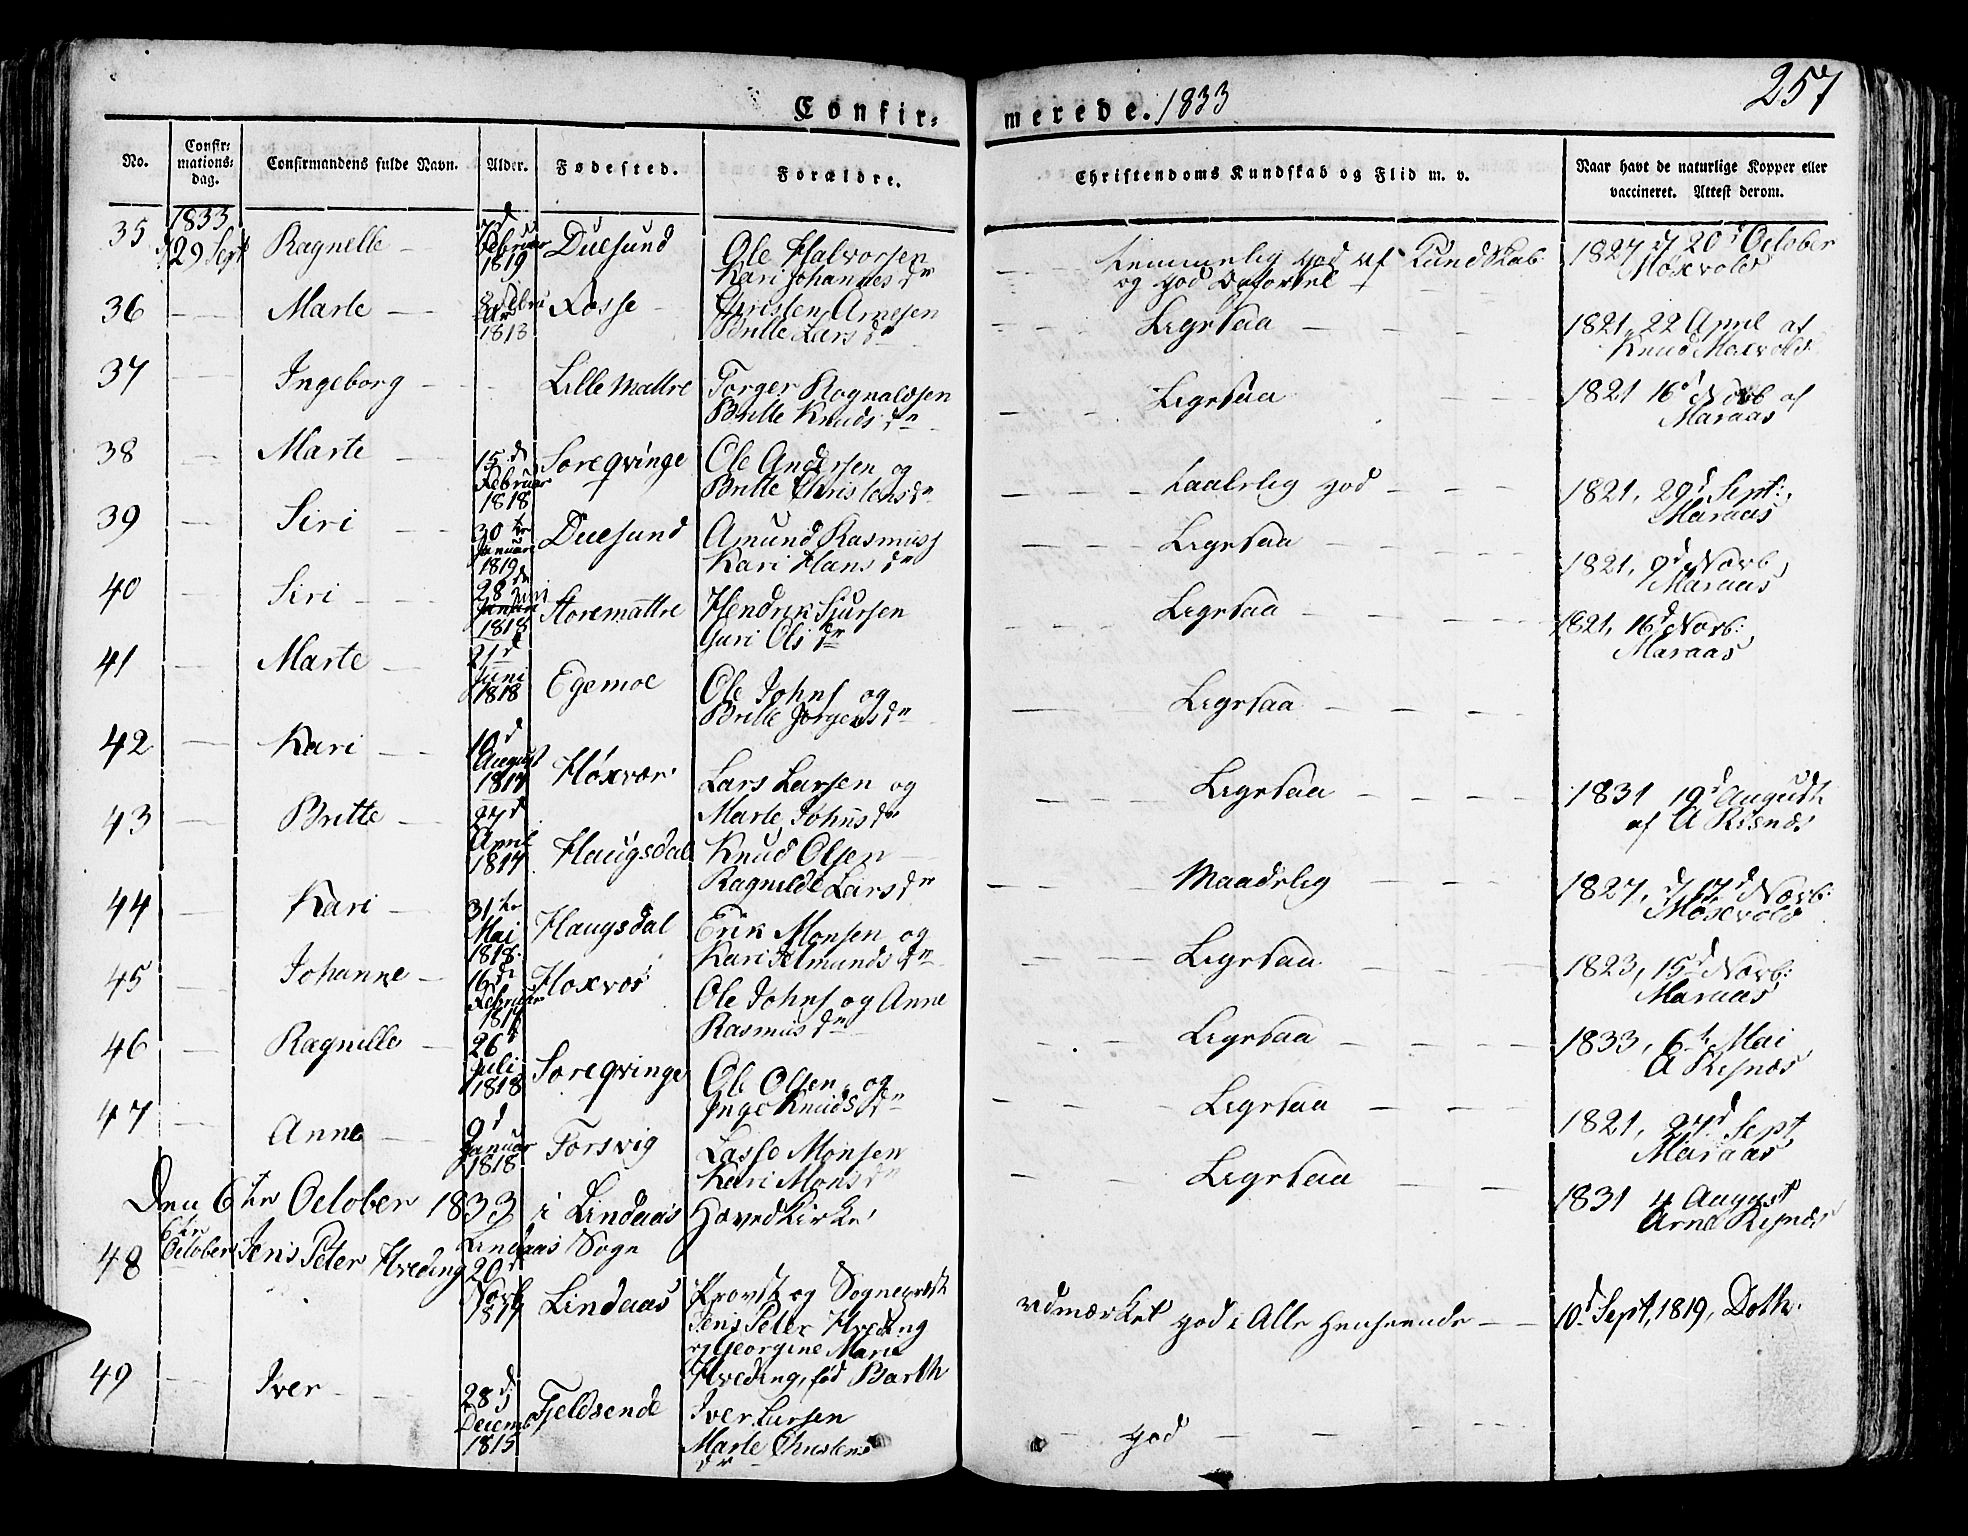 Confir-
merede. 1833
257
No.
Confir-
mations-
dag.
Confirmandens fulde Navn.
Alder.
Fødested.
Forældre.
Christendoms Kundskab og Flid m. v.
Naar havt de naturlige Kopper eller
vaccineret. Attest derom.
35 1833 29 Sept Ragnelle 7d Februar 1819 Duesund Ole Halvorsen
Kari Johannesdr
temmelig god af Kundskab
og god Opførsel
1827 d 20d October
Høxvold
36 Marte 1818 Rosse Christen Arnesen
Britte Larsdr
Ligesaa
1821, 22 April af
Knud Moxvold
37 Ingeborg Lille Mattre Torger Rognaldsen
Britte Knudsdr
Ligesaa
1821 16d Novb af
Maraas
38 Marte 15.d Februar 1818 Søreqvinge Ole Andersen og
Britte Christensdr
taalelig god
1821, 29d Sept:
Maraas
39 Siri 30te Januar 1819 Duesund Amund Rasmuss
Kari Hansdr
Ligesaa
1821, 9d Novb,
Maraas
40 Siri 28de Juni 1818 Storemattre Hendrik Sjursen
Guri Olsdr
Ligesaa
1821, 16d Novb:
Maraas
41 Marte 21d Juni 1818 Egemoe Ole Johns og
Britte Jørgensdr
Ligesaa
42 Kari 10d August 1817 Høxvær Lars Larsen og
Marte Johnsdr
Ligesaa
1831 19d August
af A Risnæs
43 Britte 27d April 1817 Haugsdal Knud Olsen
Ragnilde Larsdr
Maadelig
1827, d 17d Novb:
Moxvold
44 Kari 31te Mai 1818 Haugsdal Erik Monsen og
Kari Selmundsdr
Ligesaa
1823, 15d Novb:
Maraas
45 Johanne 16d Februar Hoxvor Ole Johns og Anne
Rasmusdr
Ligesaa
1833, 6t Mai
A Risnæs
46 Ragnille 26d Juli 1818 Søreqvinge Ole Olsen og
Inge Knudsdr
Ligesaa
1821, 27d Sept
Maraas
47 Anne 9d Januar 1818 Torsvig Lasse Monsen
Kari Monsdr
Ligesaa
1831 4 August
Arne Risnæs
Den 6te October 1833 i Lindaas Hovedkirke
Lindaas Sogn
48 6te October Jens Peter Hveding 20d Novb 1817 Lindaas Provst og Sognepræst
Jens Peter Hveding
og Georgine Marie
Hveding, fød Barth
udmærket god i Alle Henseende
10d Sept, 1819, Doth.
49 Iver 28d Decemb 1815 Fjeldsende Iver Larsen
Marte Christens
dr
god